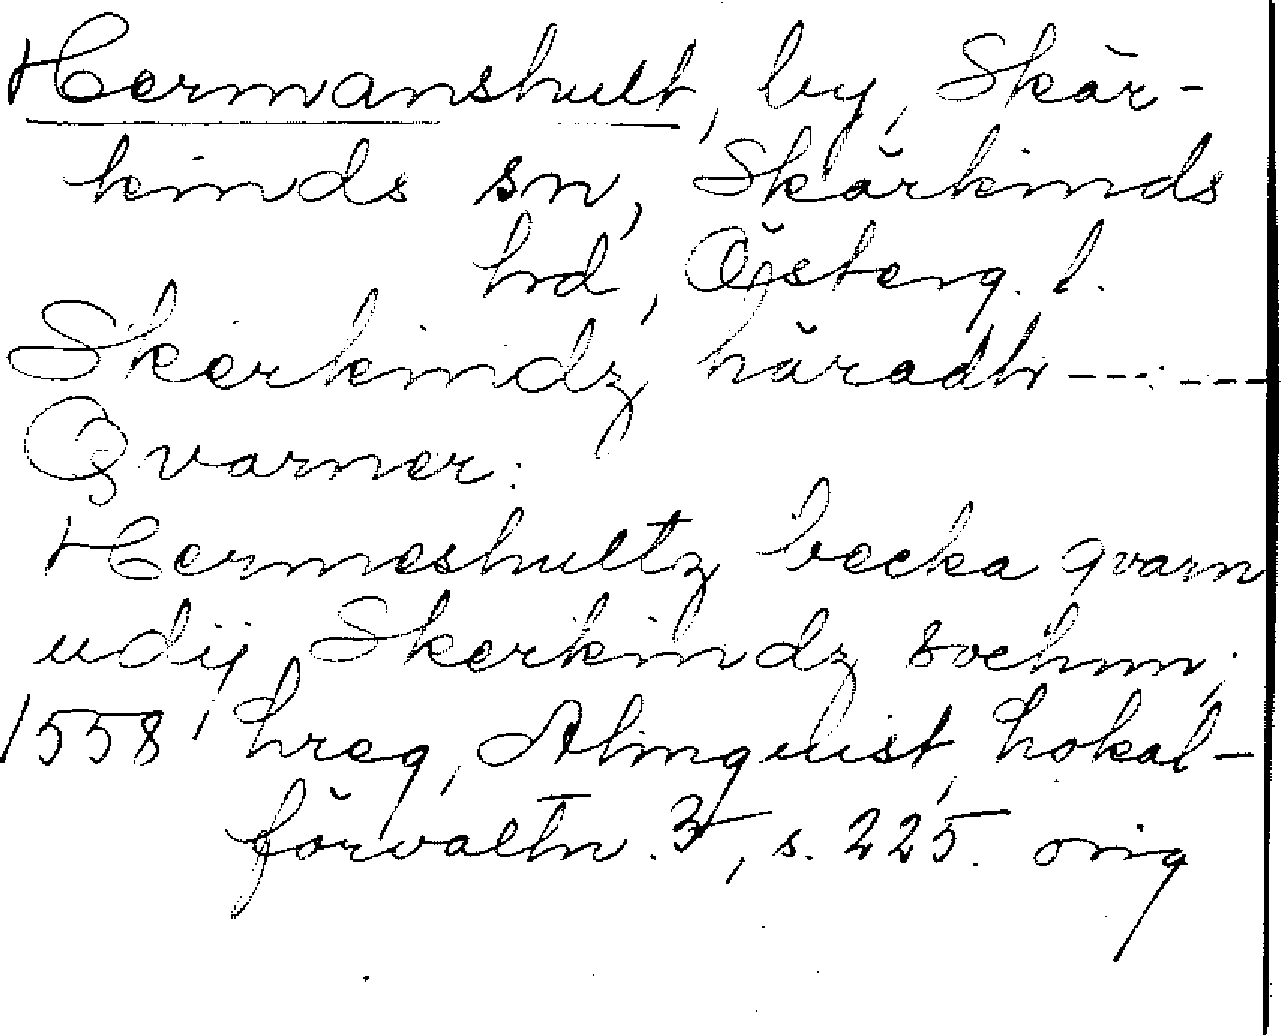 Hermanshult, by, Skär-
kinds sn, Skärkinds
hd, Österg. l.
Skerkindz häradh -------
Qvarner:
Hermeshultz becka qvarn
udij Skerkindz sochnn;
1558 hreg, Almquist, Lokal-
förvaltn. 3, s. 225. orig